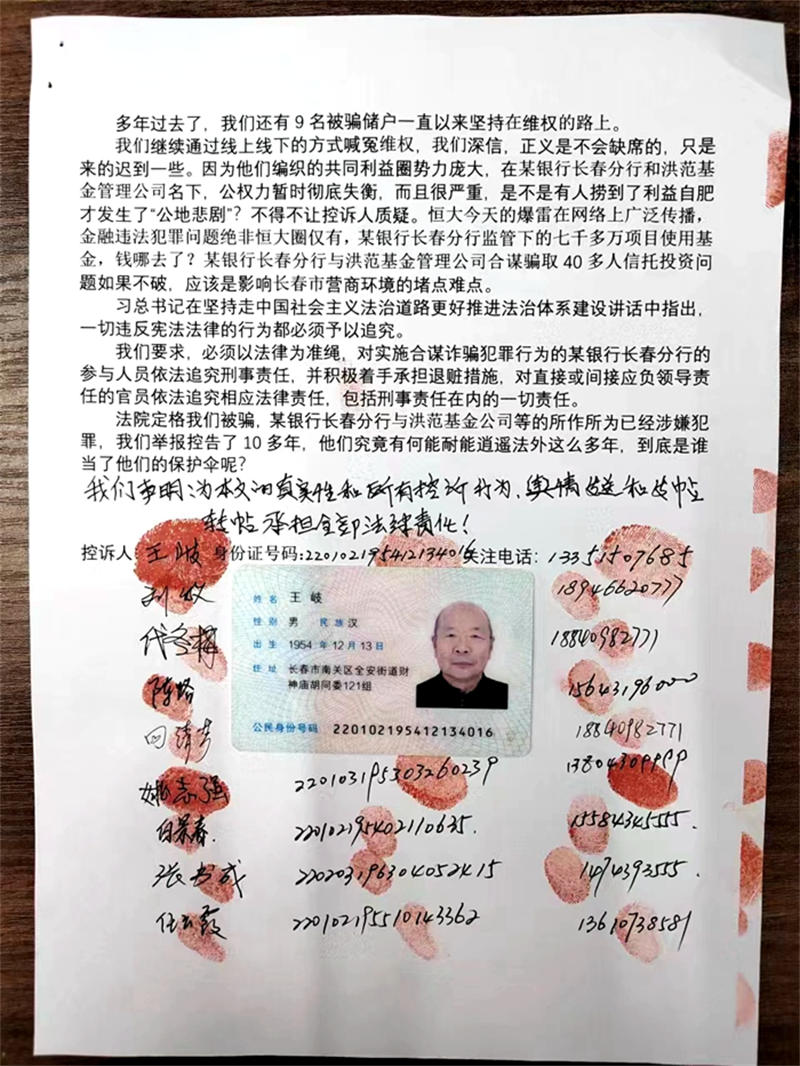 多年过去了，我们还有9名被骗储户一直以来坚持在维权的路上。
我们继续通过线上线下的方式喊冤维权，我们深信，正义是不会缺席的，只是
来的迟到一些。因为他们编织的共同利益圈势力庞大，在某银行长春分行和洪范基
金管理公司名下，公权力暂时彻底失衡，而且很严重，是不是有人捞到了利益自肥
才发生了“公地悲剧”？不得不让控诉人质疑。恒大今天的爆雷在网络上广泛传播，
金融违法犯罪问题绝非恒大圈仅有，某银行长春分行监管下的七千多万项目使用基
金，钱哪去了？某银行长春分行与洪范基金管理公司合谋骗取40多人信托投资问
题如果不破，应该是影响长春市营商环境的堵点难点。
习总书记在坚持走中国社会主义法治道路更好推进法治体系建设讲话中指出，
一切违反宪法法律的行为都必须予以追究。
我们要求，必须以法律为准绳，对实施合谋诈骗犯罪行为的某银行长春分行的
参与人员依法追究刑事责任，并积极着手承担退赃措施，对直接或间接应负领导责
任的官员依法追究相应法律责任，包括刑事责任在内的一切责任。
法院定格我们被骗，某银行长春分行与洪范基金公司等的所作所为已经涉嫌犯
罪，我们举报控告了10多年，他们究竟有何能耐能逍遥法外这么多年，到底是谁
当了他们的保护伞呢？
我们声明：为本文的真实性和所有控诉行为、舆情发送和
转帖承担全部法律责任！
控诉人：王岐 身份证号码：220102195412134016 关注电话：13351507685
18946620777
姓名 王岐
性别 男 民族 汉
出生 1954年12月13日
住址 长春市南关区全安街道财
神庙胡同委121组
公民身份号码 220102195412134016
18840982771
15643196000
18840982771
姚志强 220103195303260239 13804309999
220102195402110635. 15584345555.
张书成 220203196304052415 14743935555.
任云霞 220102195510143362 13610738581